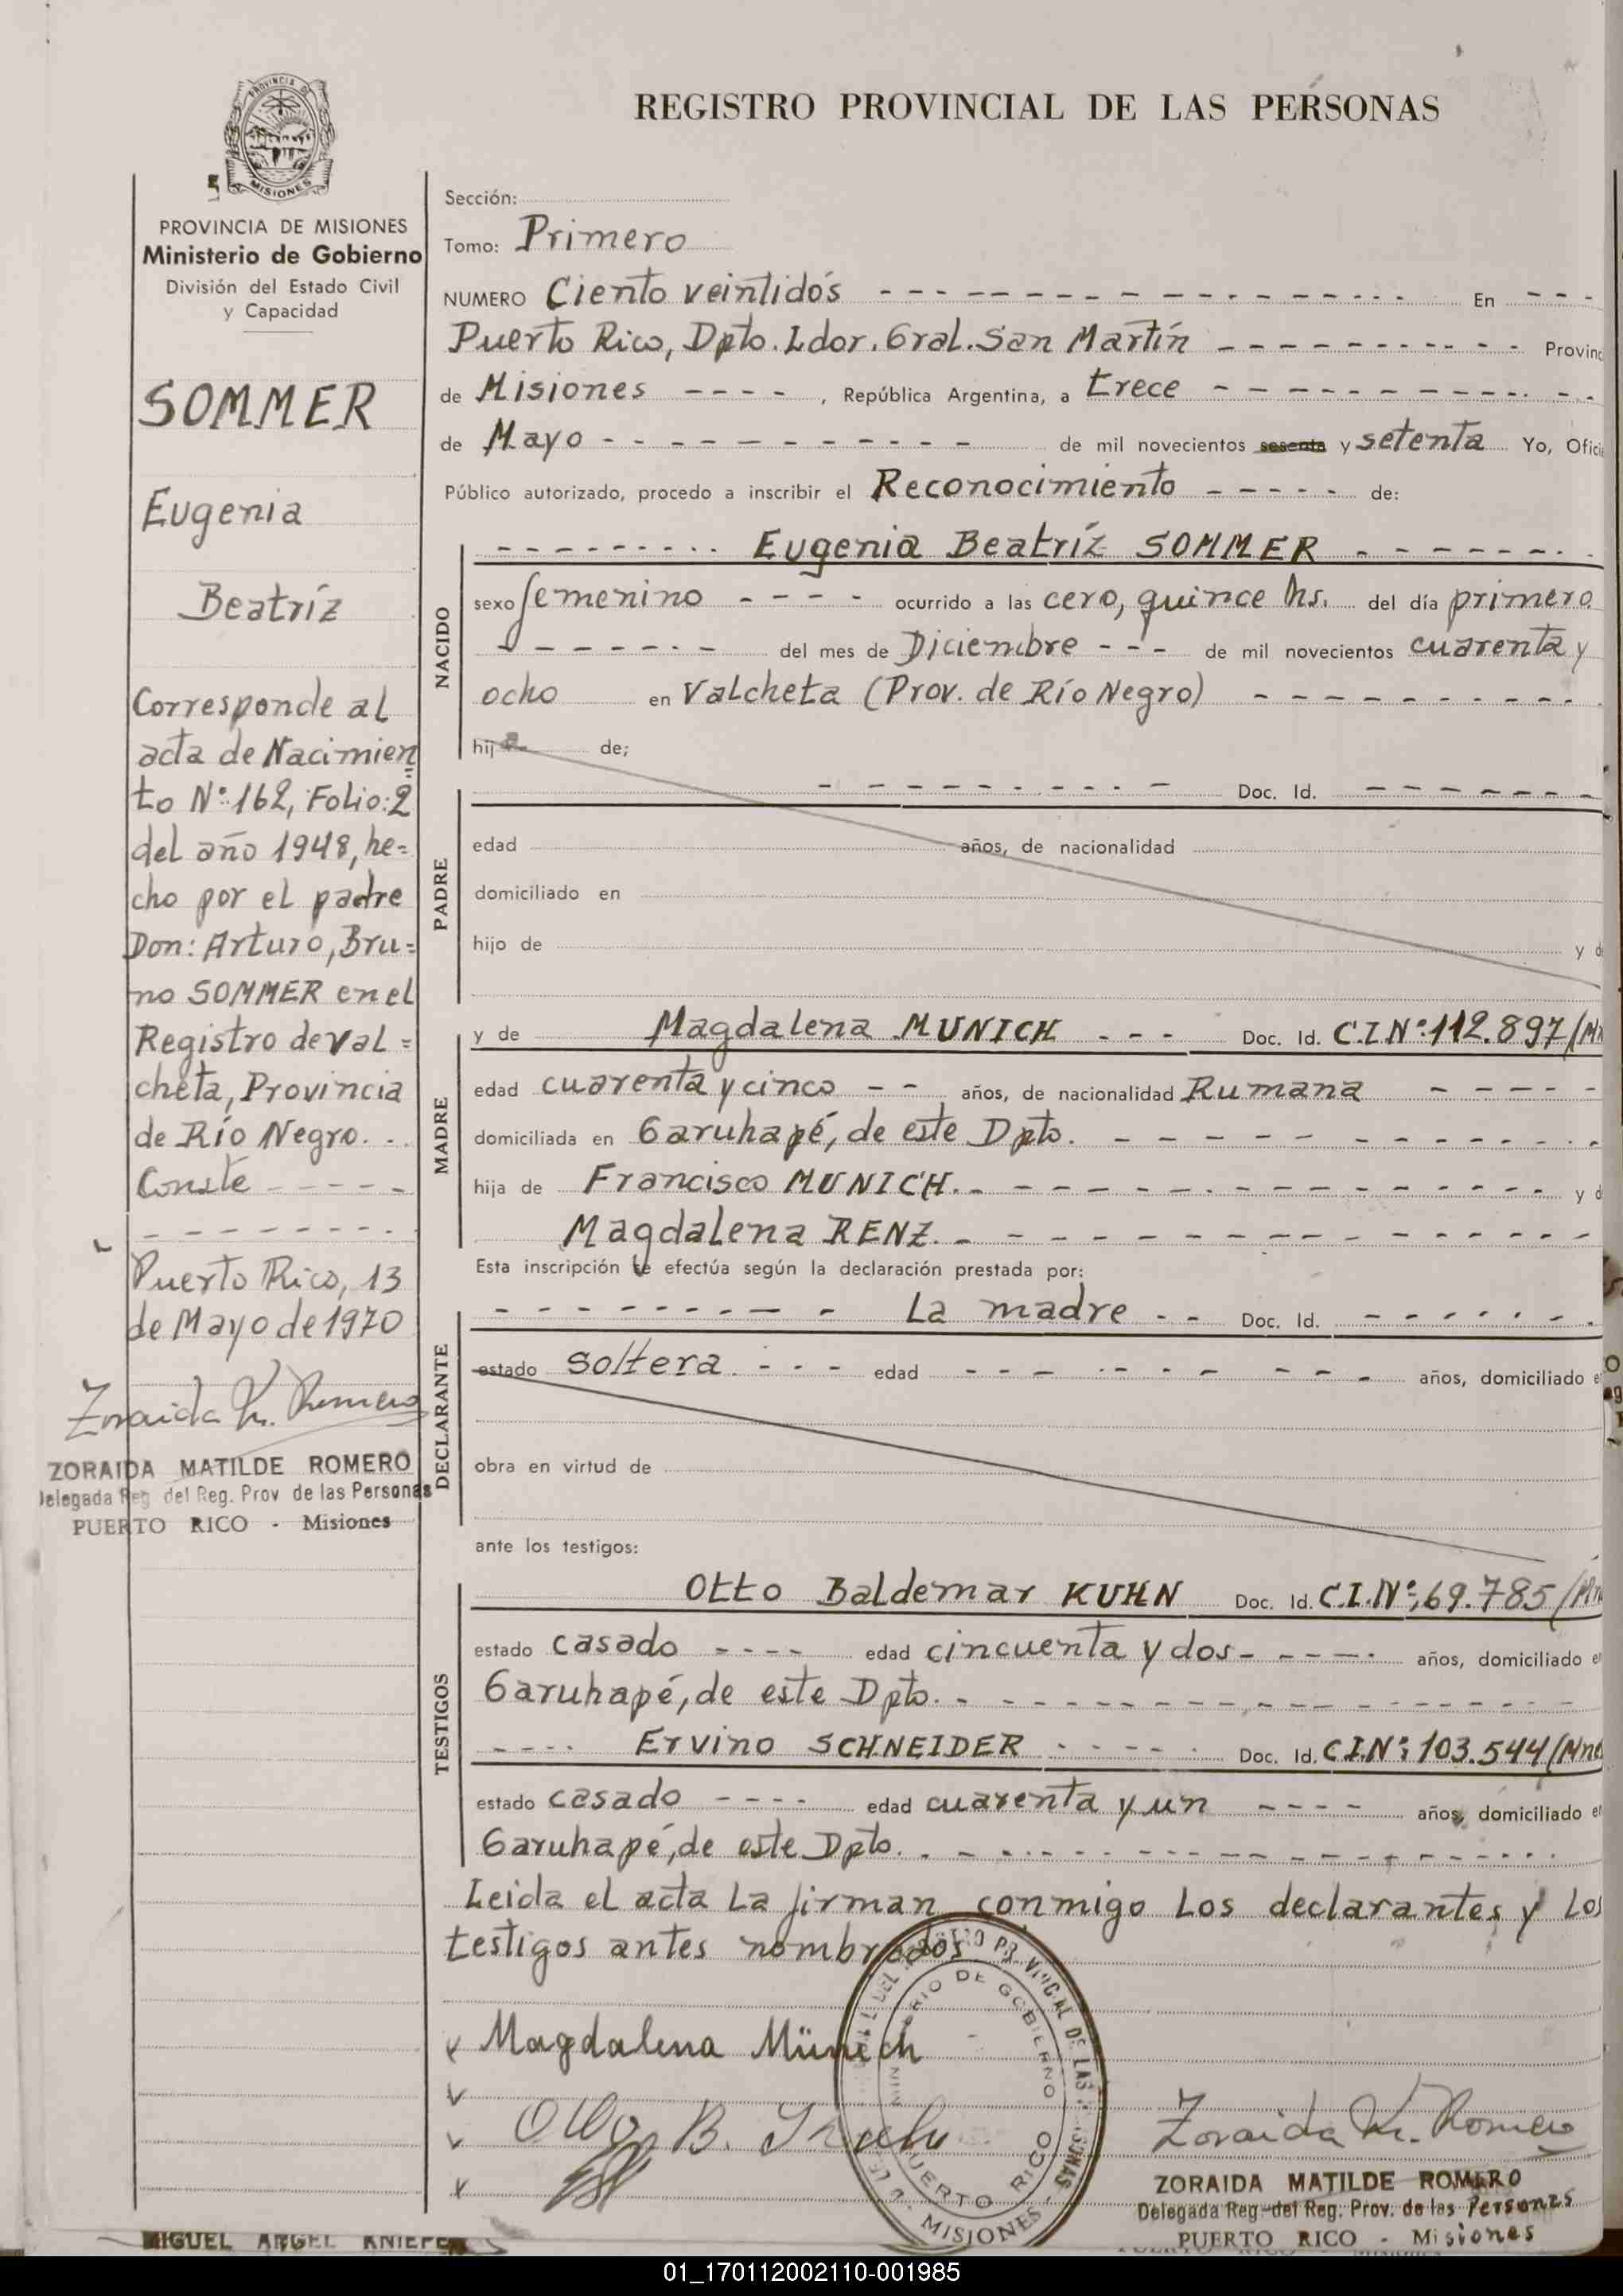 REGISTRO PROVINCIAL DE LAS PERSONAS
PROVINCIA DE
MISIONES
PROVINCIA DE MISIONES
Ministerio de Gobierno
División del Estado Civil
y Capacidad
SOMMER
Eugenia
Beatríz
Corresponde al
acta de Nacimien
to Nº 162, Folio: 2
del año 1948, he=
cho por el padre
Don: Arturo, Bru=
no SOMMER en el
Registro de Val=
cheta, Provincia
de Río Negro. - .
Conste - - - - -
- - - - - - - -
Puerto Rico, 13
de Mayo de 1970
Zoraida M. Romero
ZORAIDA MATILDE ROMERO
Delegada Reg del Reg. Prov de las Personas
PUERTO RICO - Misiones
Sección:
Tomo: Primero
NUMERO Ciento veintidós - - - En - - -
Puerto Rico, Dpto. Ldor. Gral. San Martín - - - Provinc
de Misiones - - - - , República Argentina, a trece - - -
de Mayo - - - de mil novecientos sesenta y setenta Yo, Ofici
Público autorizado, procedo a inscribir el Reconocimiento - - - - - de:
NACIDO
- - - Eugenia Beatríz SOMMER - - -
sexo femenino - - - - ocurrido a las cero, quince hs. del día primero
- - - del mes de Diciembre - - - de mil novecientos cuarenta y
ocho en Valcheta (Prov. de Río Negro) - - -
hij de;
PADRE
- - - Doc. Id. - - -
edad años, de nacionalidad
domiciliado en
hijo de y d
MADRE
y de Magdalena MUNICH - - - Doc. Id. C.I.Nº 112.897/Mn
edad cuarenta y cinco - - años, de nacionalidad Rumana - - - -
domiciliada en Garuhapé, de este Dpto. - - -
hija de Francisco MUNICH. - - - y d
Magdalena RENZ. - - -
Esta inscripción se efectúa según la declaración prestada por:
DECLARANTE
- - - La madre - - Doc. Id. - - -
estado soltera. - - - edad - - - años, domiciliado e
obra en virtud de
ante los testigos:
TESTIGOS
Otto Baldemar KUHN Doc. Id. C.I.Nº: 69.785/Mn
estado casado - - - - edad cincuenta y dos - - - años, domiciliado e
Garuhapé, de este Dpto. - - -
- - - - Ervino SCHNEIDER - - - Doc. Id. C.I.Nº: 103.544/Mne
estado casado - - - - edad cuarenta y un - - - - años, domiciliado e
Garuhapé, de este Dpto. - - -
Leida el acta la firman conmigo los declarantes y los
testigos antes nombrados
Magdalena Münich
Otto B. Kuhn
MINISTERIO DE GOBIERNO
PUERTO RICO
MISIONES
Zoraida M. Romero
ZORAIDA MATILDE ROMERO
Delegada Reg. del Reg. Prov. de las Personas
PUERTO RICO - Misiones
MIGUEL ANGEL
01_170112002110-001985